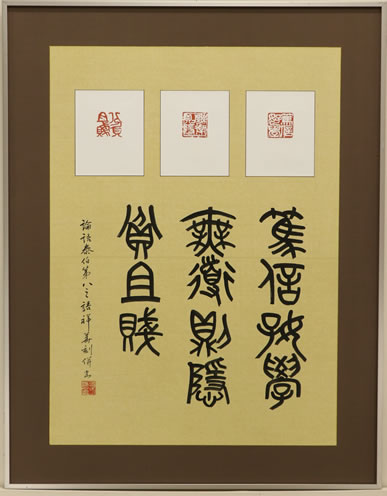 篤信好學
無道則隱
貧且賤
論語泰伯第八之語祥